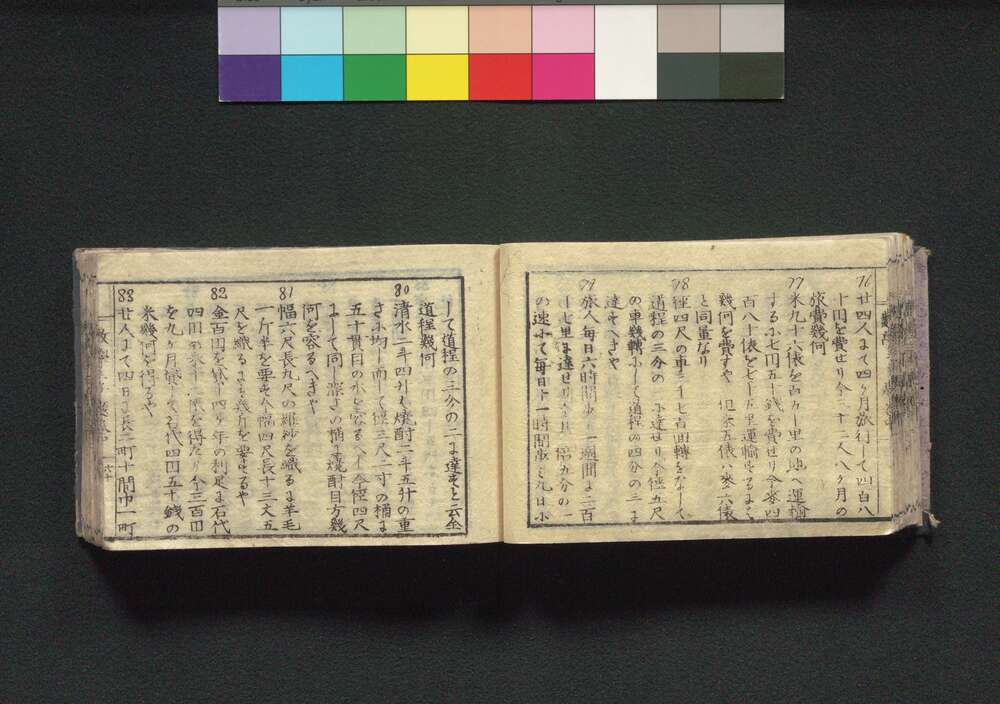 76
廿四人にて四ヶ月旅行して四百八
十円を費せり今 十二人八ヶ月の
旅費幾何
77
米九十六俵を 里の地へ運輸
する小七円五十銭を費せり今麥四
百八十俵を七十五里運輸するに
幾何を費すや 但米五俵ハ麥六俵
と同量なり
78
径四尺の車三千七百回轉をなして
道程の三分の 小達せり今径五尺
の車幾轉小して道程の四分の三に
達すべきや
79
旅人毎日六時間歩 一週間に二百
十七里に達せり 五分の一
の速小て毎日十一時間歩 九日小
して道程の三分の二に達すと云全
道程幾何
80
清水二斗四升と焼酎二斗五升の重
さ小均し而して径三尺二寸の桶に
五十貫目の水を容るべし今径四尺
にして同し深さの桶に焼酎目方幾
何を容るべきや
81
幅六尺長九尺の羅紗を織るに羊毛
一斤半を要す今幅四尺長十三丈五
尺を織るには幾斤を要するや
82
金百円を貸し四ヶ年の利足に石代
四円の米十 を得たり今三百円
を九ヶ月貸して石代四円五十銭の
米幾何を得るや
83
廿人にて四日に長二町十間巾一町